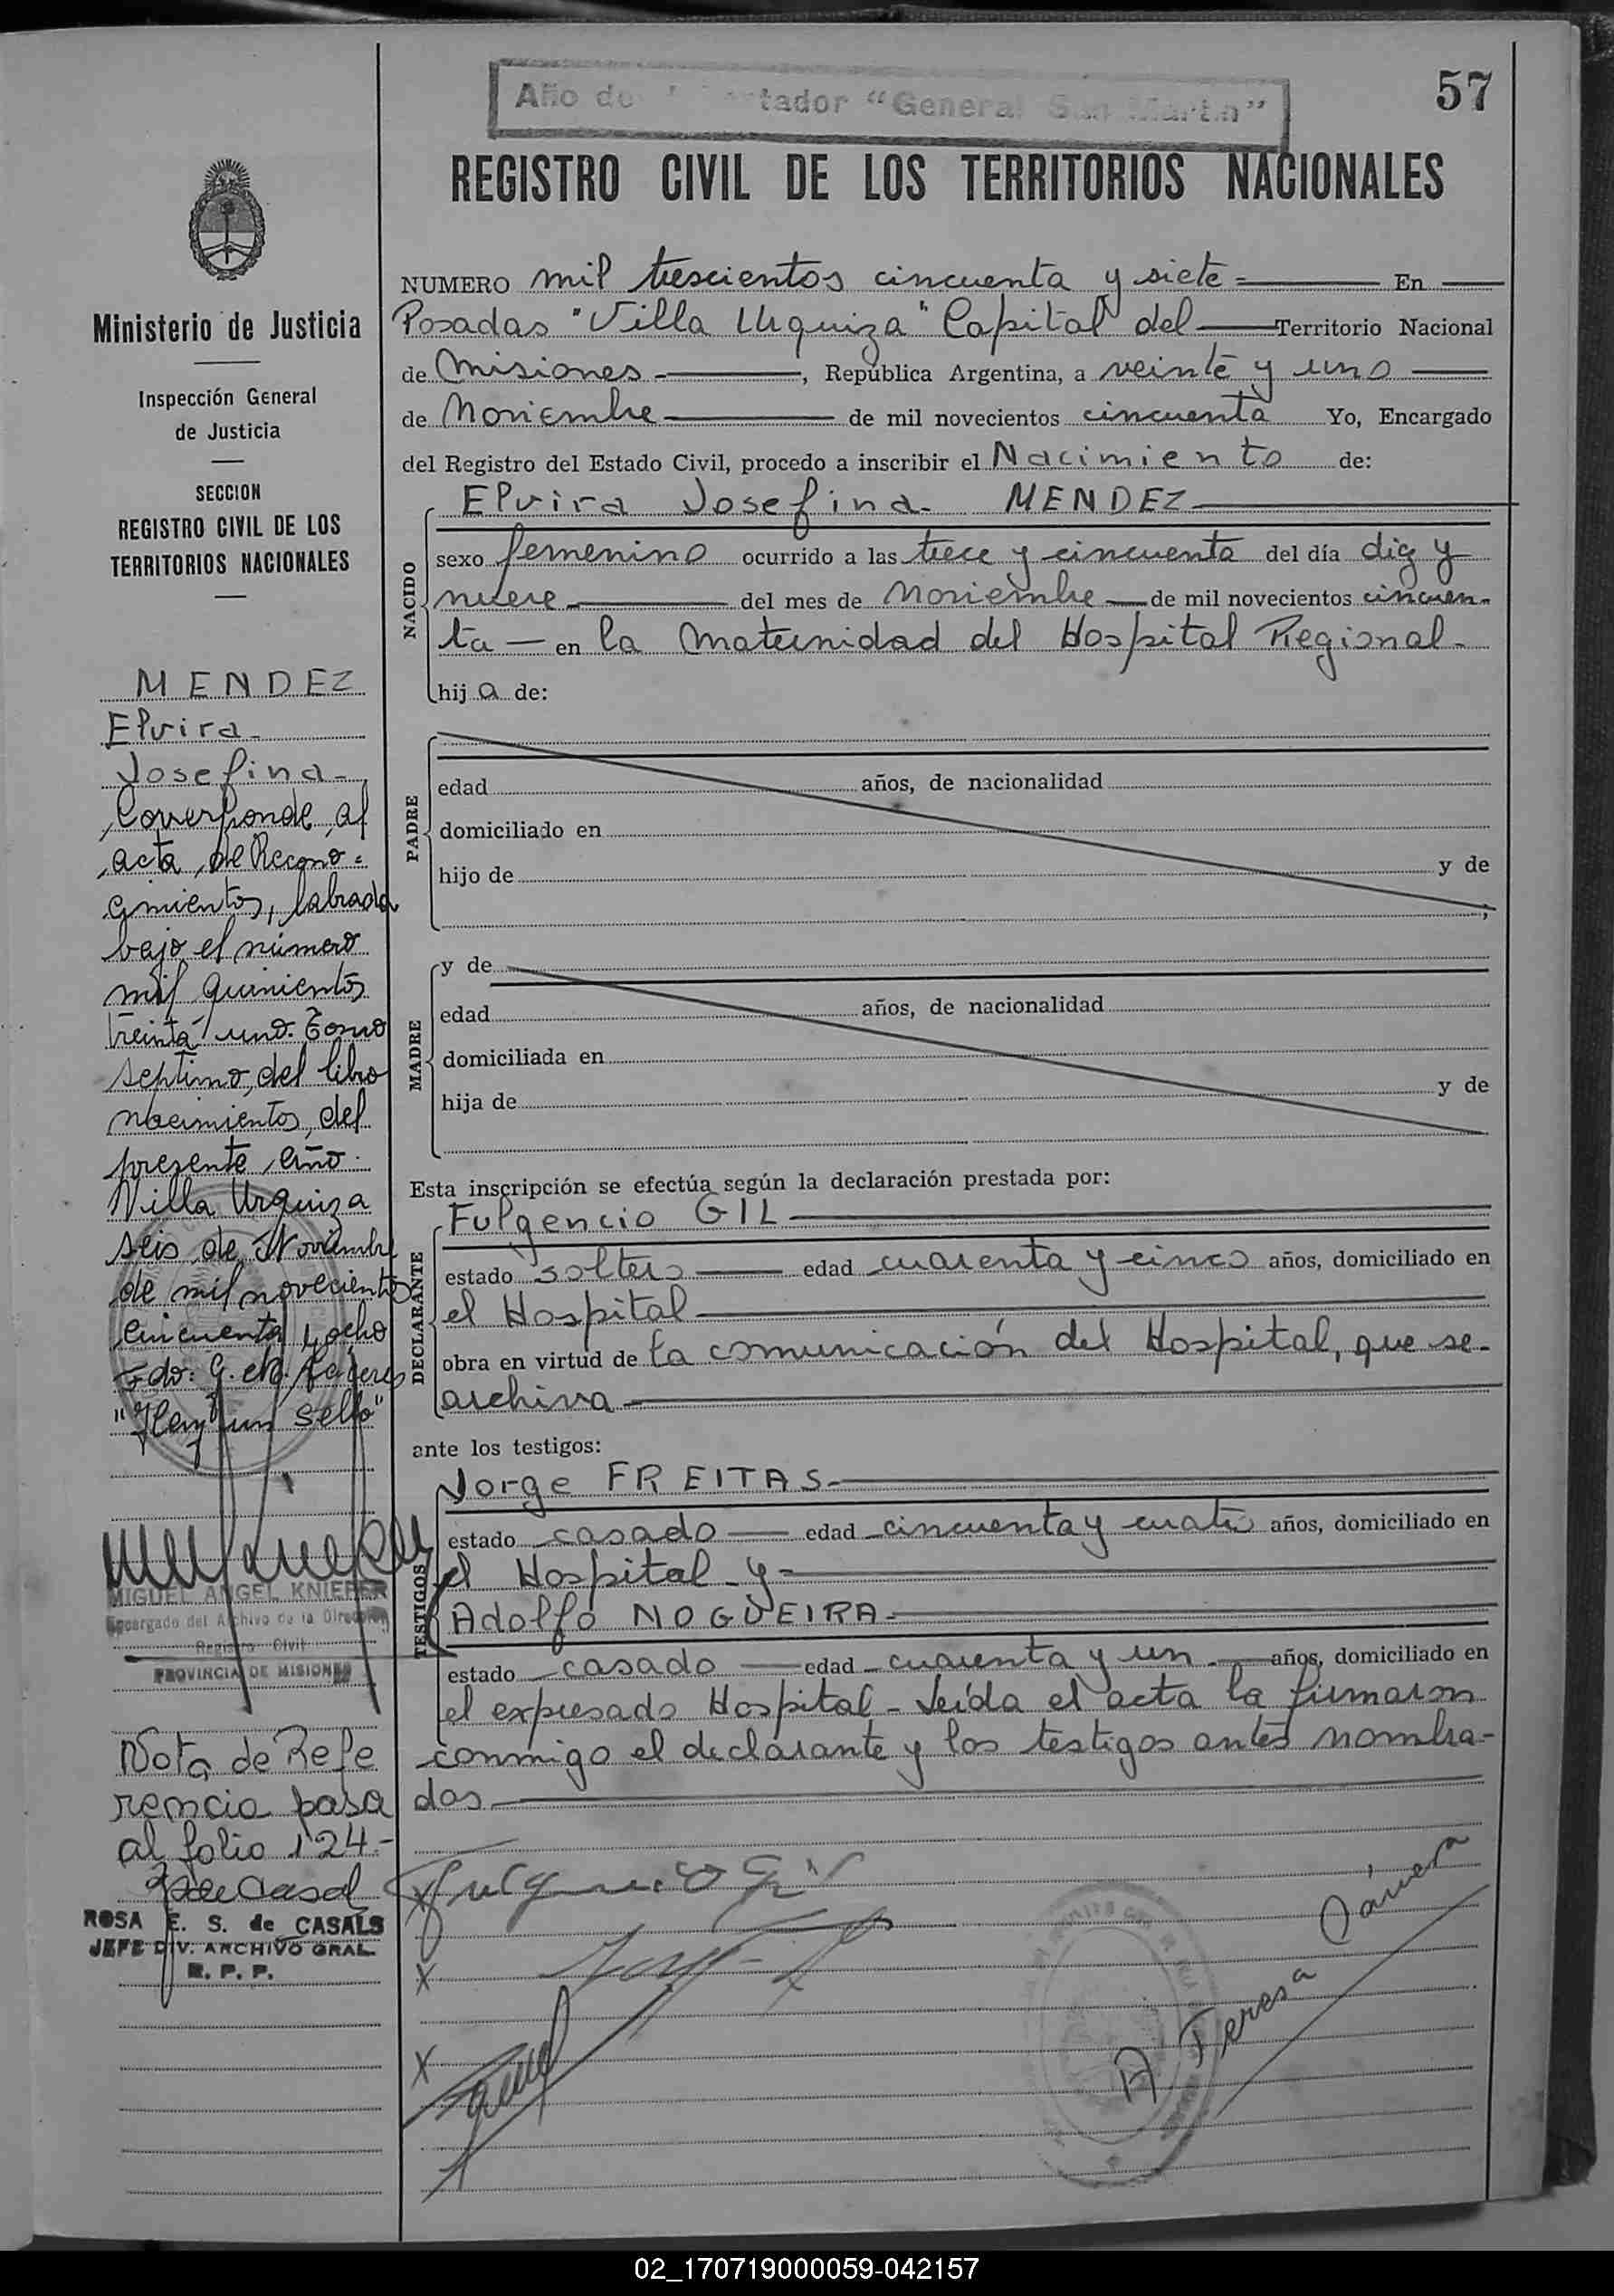 57
Año de tador "General San Martín"
REGISTRO CIVIL DE LOS TERRITORIOS NACIONALES
NUMERO mil trescientos cincuenta y siete = En
Posadas "Villa Urquiza" Capital del Territorio Nacional
de Misiones - , República Argentina, a veinte y uno
de Noviembre de mil novecientos cincuenta Yo, Encargado
del Registro del Estado Civil, procedo a inscribir el Nacimiento de:
NACIDO
Elvira Josefina MENDEZ
sexo femenino ocurrido a las trece y cincuenta del día diez y
nueve - del mes de Noviembre de mil novecientos cincuen-
ta - en la Maternidad del Hospital Regional -
hij a de:
PADRE
edad años, de nacionalidad
domiciliado en
hijo de y de
;
MADRE
y de
edad años, de nacionalidad
domiciliada en
hija de y de
Esta inscripción se efectúa según la declaración prestada por:
DECLARANTE
Fulgencio GIL
estado soltero edad cuarenta y cinco años, domiciliado en
el Hospital
obra en virtud de la comunicación del Hospital, que se
archiva
ante los testigos:
TESTIGOS
Jorge FREITAS -
estado casado edad cincuenta y cuatro años, domiciliado en
el Hospital y =
Adolfo NOGUEIRA -
estado casado edad cuarenta y un años, domiciliado en
el expresado Hospital - Leída el acta la firmaron
conmigo el declarante y los testigos antes nombra-
dos
Fulgencio Gil
x
x
A Teresa
Ministerio de Justicia
Inspección General
de Justicia
SECCION
REGISTRO CIVIL DE LOS
TERRITORIOS NACIONALES
MENDEZ
Elvira -
Josefina -
Corresponde al
acta de Recono =
cimientos, labrada
bajo el número
mil quinientos
treinta uno. Tomo
septimo, del libro
nacimientos, del
presente año.
Villa Urquiza
seis de Noviembre
de mil novecientos
cincuenta y ocho
Fdo: G.
"Hay un sello"
MIGUEL ANGEL KNIEPER
Encargado del Archivo de la Dirección
Registro Civil
PROVINCIA DE MISIONES
Nota de Refe
rencia pasa
al folio 124.-
de Casal
ROSA E. S. de CASALS
JEFE DIV. ARCHIVO GRAL.
R. P. P.
02_170719000059-042157